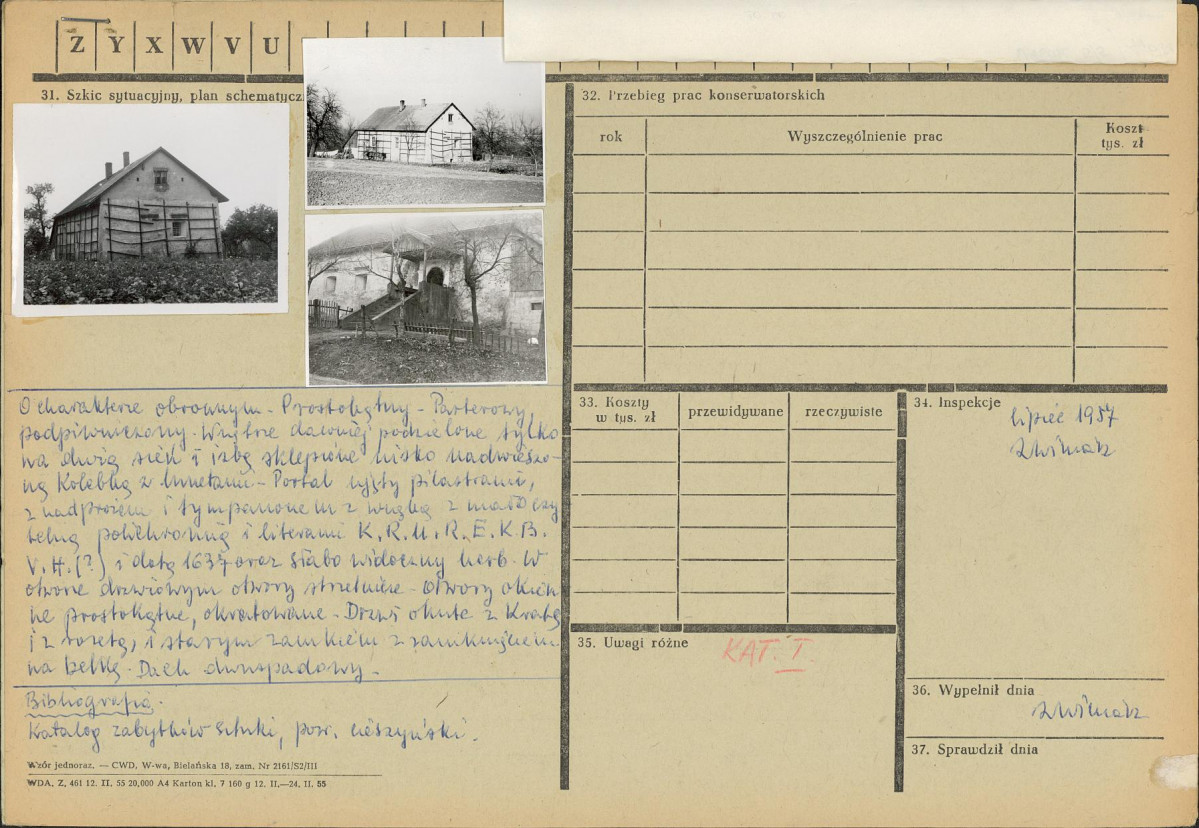 Z Y X W V U
31. Szkic sytuacyjny, plan schematycz
O charakterze obronnym - Prostokątny - Parterowy,
podpiwniczony. Wnętrze dawniej podzielone tylko
na dwie sień i izbę sklepione nisko nadwieszo-
ną kolebką z lunetami - Portal ujęty pilastrami,
z nadprożem i tympanonem z wnęką z mało czy
telną polichromią i literami K. R. U. R. E. K. B.
V. H. (?) i datą 1637 oraz słabo widoczny herb. W
otworze drzwiowym otwory strzelnicze - Otwory okien
ne prostokątne, okratowane - Drzwi okute z kratą
i z rozetą, i starym zamkiem z zamknięciem
na belkę. Dach dwuspadowy.
Bibliografia.
Katalog zabytków sztuki, pow. cieszyński.
Wzór jednoraz. — CWD, W-wa, Bielańska 18, zam. Nr 2161/S2/III
WDA. Z. 461 12. II. 55 20,000 A4 Karton kl. 7 160 g 12. II.—24. II. 55
32. Przebieg prac konserwatorskich
rok Wyszczególnienie prac Koszt tys. zł
33. Koszty w tys. zł przewidywane rzeczywiste
34. Inspekcje
lipiec 1957
35. Uwagi różne
KAT. I.
36. Wypełnił dnia
37. Sprawdził dnia